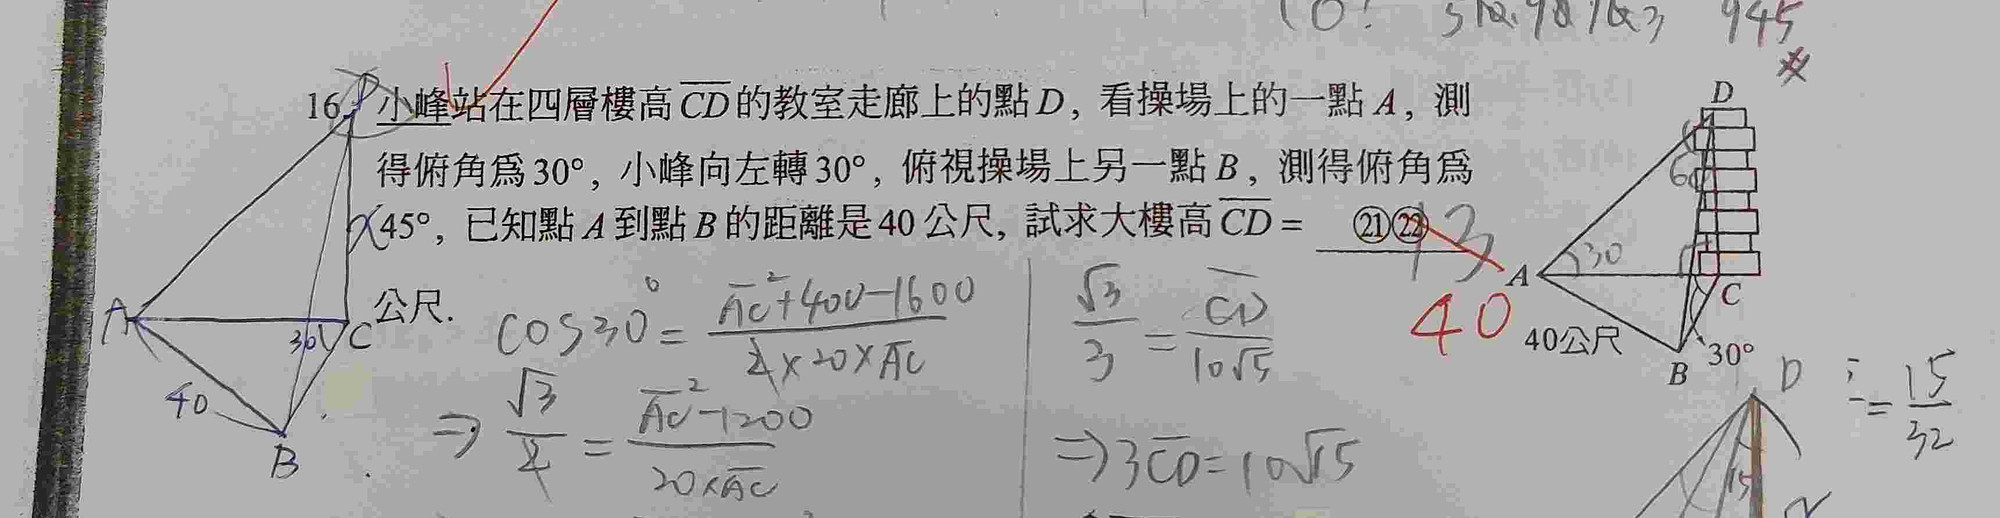 945
16. 小峰站在四層樓高CD的教室走廊上的點D，看操場上的一點A，測
得俯角為30°，小峰向左轉30°，俯視操場上另一點B，測得俯角為
45°，已知點A到點B的距離是40公尺，試求大樓高CD = ㉑㉒
公尺.
13
40
cos30° = AC²+400-1600 / 2×20×AC
⇒ √3/2 = AC²-1200 / 20×AC
√3/3 = CD / 10√5
⇒ 3CD = 10√15
D
60
30
A
C
40公尺
B
30°
A
30
C
40
B
D
= 15/32
15